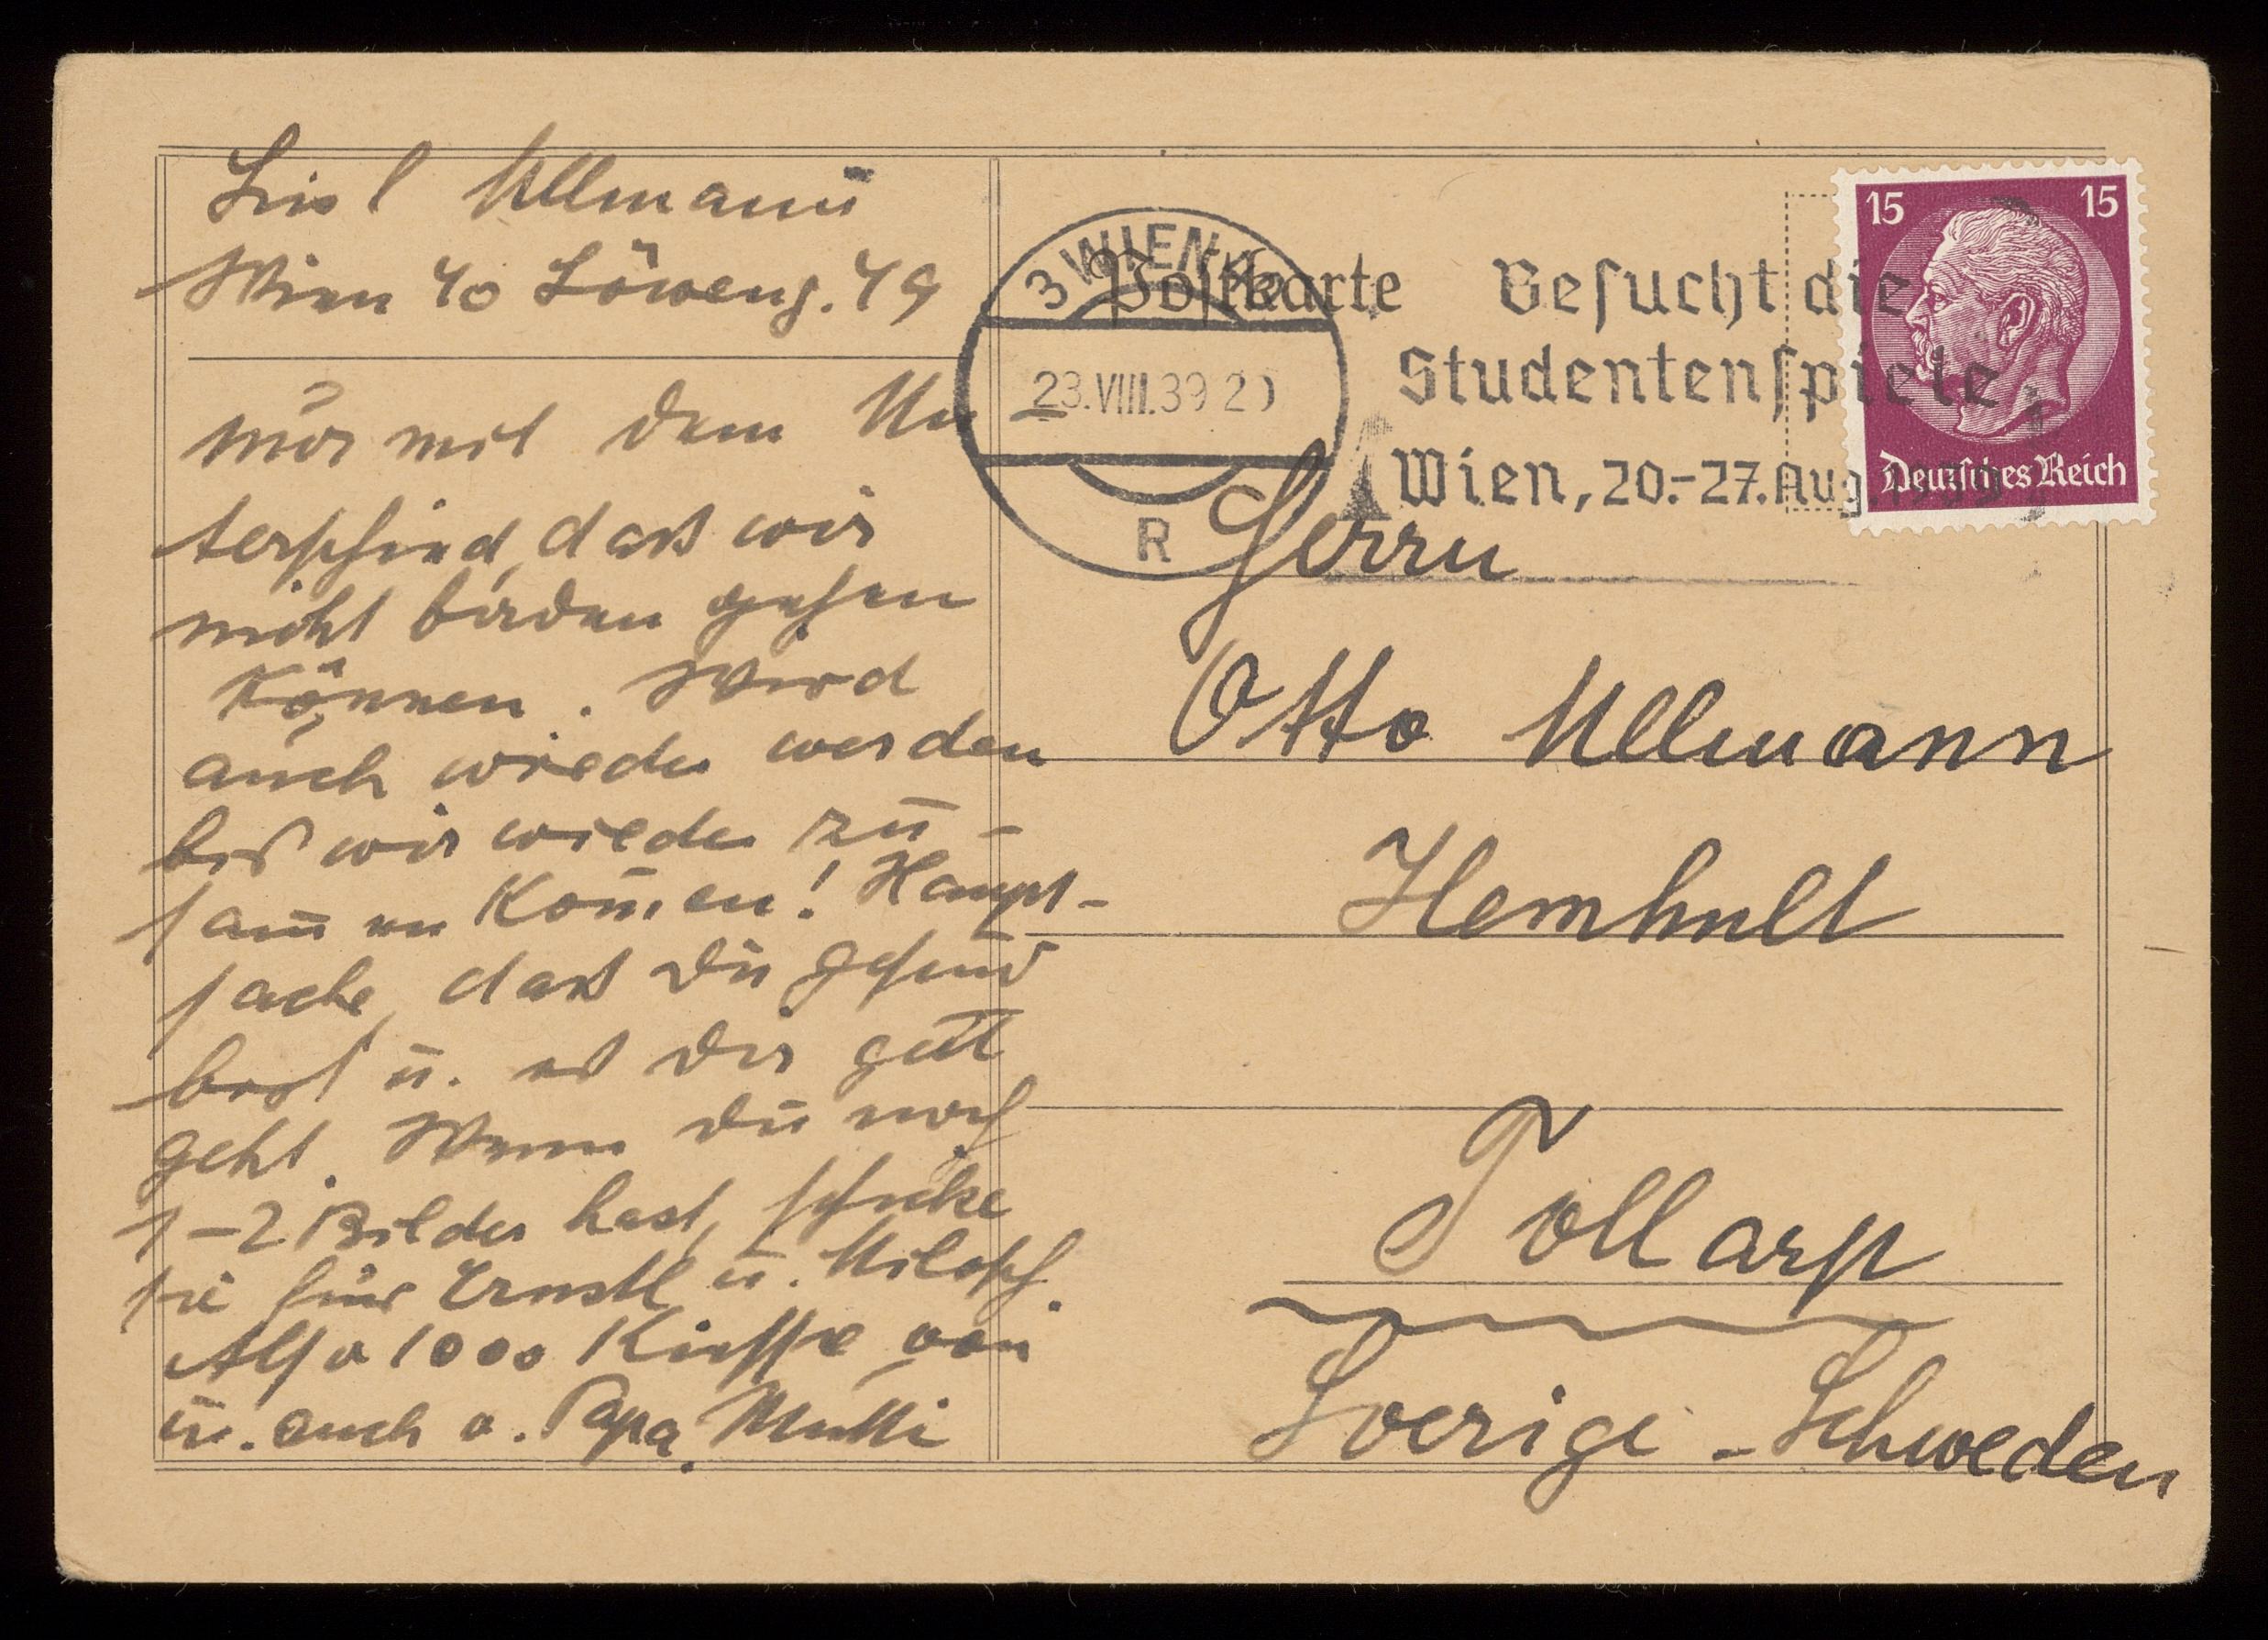 Lisl Ullmann
Wien 40 Löweng. 49
nür mit dem Un
terschied, daß wir
nicht baden gehen
können. Wird
auch wieder werden
bis wir wieder zu-
sam̄en kom̄en! Haupt-
sache, daß Du gesund
bist u. es Dir gut
geht. Wenn Du noch
1-2 Bilder hast, schicke
sie für Ernstl u.
Also 1000 Küsse von
u. auch v. Papa, Mutti
Postkarte
3 WIEN
23.VIII.39 2
R
Besucht die
Studentenspiele
Wien, 20.-27. Aug. 1939
15 15
Deutsches Reich
Herrn
Otto Ullmann
Hemhult
Tollarp
Sverige - Schweden